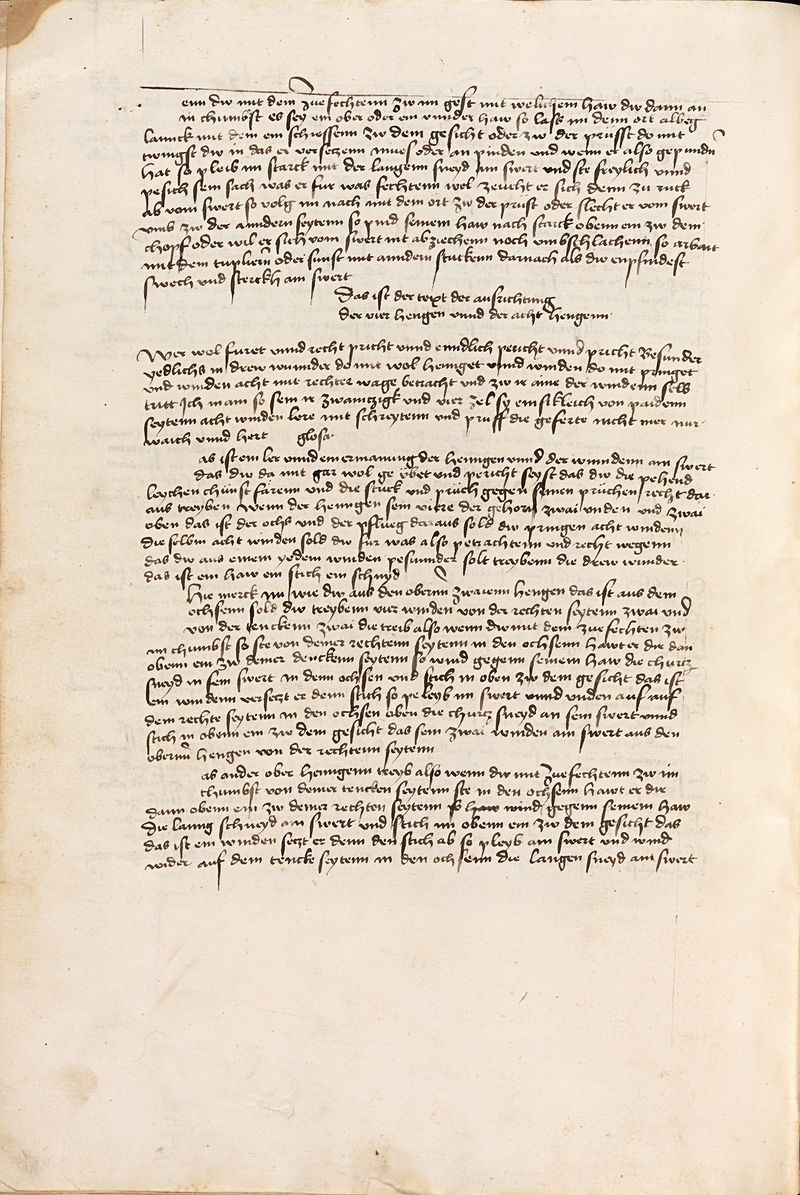 enn dw mit dem Zue fechtenn zw im gest mit welichem haw dw dann an
in chumbst es sey ein ober oder ein vnnder haw so lass im denn ort albeg
lannck mit dem ein schiessenn zw dem gesicht oder zw der prüsst do mit
twingst dw in das er versetzenn mues oder an pinden vnd wenn er also gepundn
hat so pleib im starck mit der langenn sneyd am swert vnd ste freylich vnnd
pesich sein sach was er fur was fechtenn wel zeucht er sich denn zu ruck
ab vom swert so volg im nach mit dem ort zw der prüst oder slecht er vom swert
vmb zw der anndern seytenn so pind seinem haw nach starck obenn ein zw dem
chopf oder wil er sich vom swert nit abziechenn noch vmbschlachenn so arbait
mit dem tupliern oder sunst mit anndern stuckenn darnach als dw enpfindest
swech vnd sterckh am swert
Das ist der text der aufrichtung
der vier hengen vnnd der acht hengenn
Wer wol furet vnnd recht pricht vnnd enndlich pericht vnnd pricht Besunder
yedlichs in drew wunnder do mit wol hennget vnnd winden do mit pringet
vnd winden acht mit rechter wage betracht vnd zw ir aine der windenn selb
tritt Ich main so sein ir zwainczigk vnd vier zel sy einsikleich von paidenn
seytenn acht winden lere mit schreytenn vnd prüff die geferte nicht mer nur
waich vnnd hert glosa
as ist ein ler vnnd ein ermanung der henngen vnnd der winndenn am swert
das dw da mit gar wol ge übet vnd pericht seyst das dw die pehend
leychen chünst farenn vnd die stuck vnd pruch gegen seinen prüchen recht dar
aus treyben Wenn der henngen sein viere der gehorn zwai vnden vnd zwai
oben das ist der ochs vnd der pflueg daraus sold dw pringen acht windenn
die selbm acht winden sold dw fur was also petrachtenn vnd recht wegenn
das dw aus einem yedem winden pesunnder solt treybenn die drew wunder
das ist ein haw ein stich ein schnyd
Hie merck nu wie dw aus den obernn zwaienn hengen das ist aus dem
ochsenn sold dw treybenn vier winden von der rechten seytenn zwai vnd
von der tenckenn zwai die treib also wenn dw mit dem zue fechten zw
im chumbst so ste von deiner rechtenn seytenn in den ochsenn hawt er dir dan
obenn ein zw deiner denckenn seytenn so wind gegenn seinem haw die churcz
sneyd in sein swert in denn ochsen vnd stich im oben zw dem gesicht das ist
ein windenn versetzt er denn stich so peleyb im swert vnnd vnden auf auf
dem rechte seytenn in den ochsen oben die churcz sneyd an sein swert vnnd
stich im obenn ein zw dem gesicht das sein zwai winden am swert aus den
obernn hengen von der rechtenn seytenn
as ander ober henngenn treyb also wenn dw mit Zuefechtenn zw im
chumbst von deiner tencken seytenn ste in den ochsenn hawt er dir
dann obenn ein zw deiner rechten seytenn so haw wind gegenn seinem haw
die lanng schneyd an swert vnd stich im obenn ein zw dem gesicht das
das ist ein winden setzt er denn den stich ab so pleyb am swert vnd wind
wider auf dem tencke seytenn in den ochsenn die langen sneyd am swert